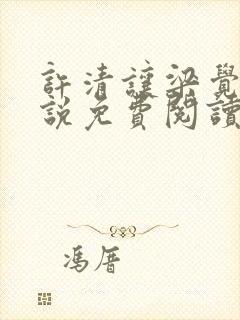 許清謹梁覺
說免費閱讀
馮厝